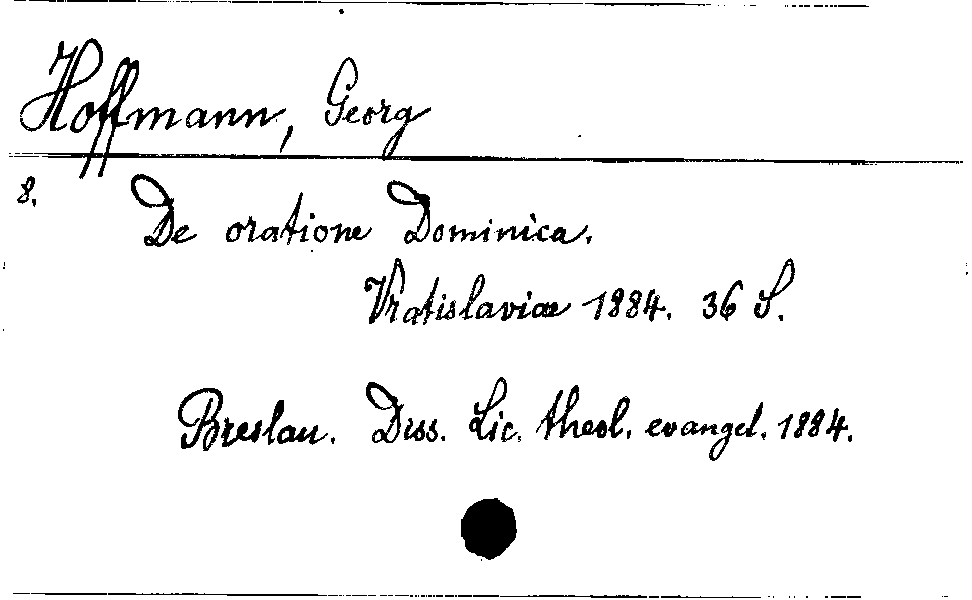 Hoffmann, Georg
8. De oratione Dominica.
Vratislaviae 1884. 36 S.
Breslau. Diss. Lic. theol. evangel. 1884.